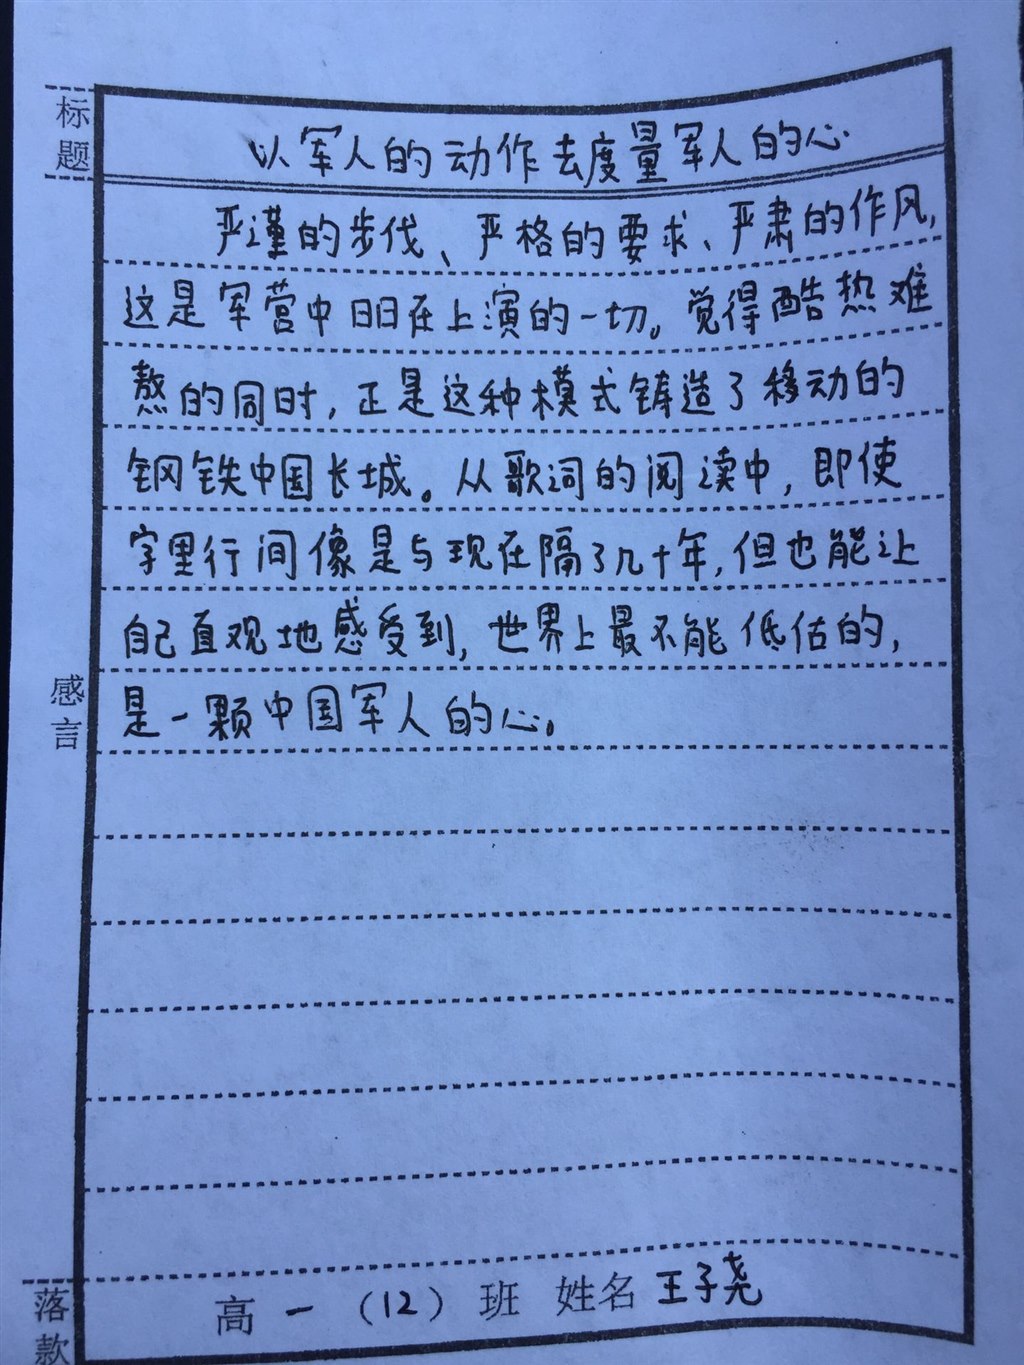 标题
以军人的动作去度量军人的心
严谨的步伐、严格的要求、严肃的作风,
这是军营中日日在上演的一切。觉得酷热难
熬的同时,正是这种模式铸造了移动的
钢铁中国长城。从歌词的阅读中,即使
字里行间像是与现在隔了几十年,但也能让
自己直观地感受到,世界上最不能低估的,
是一颗中国军人的心。
感言
落款
高一(12)班 姓名 王子尧